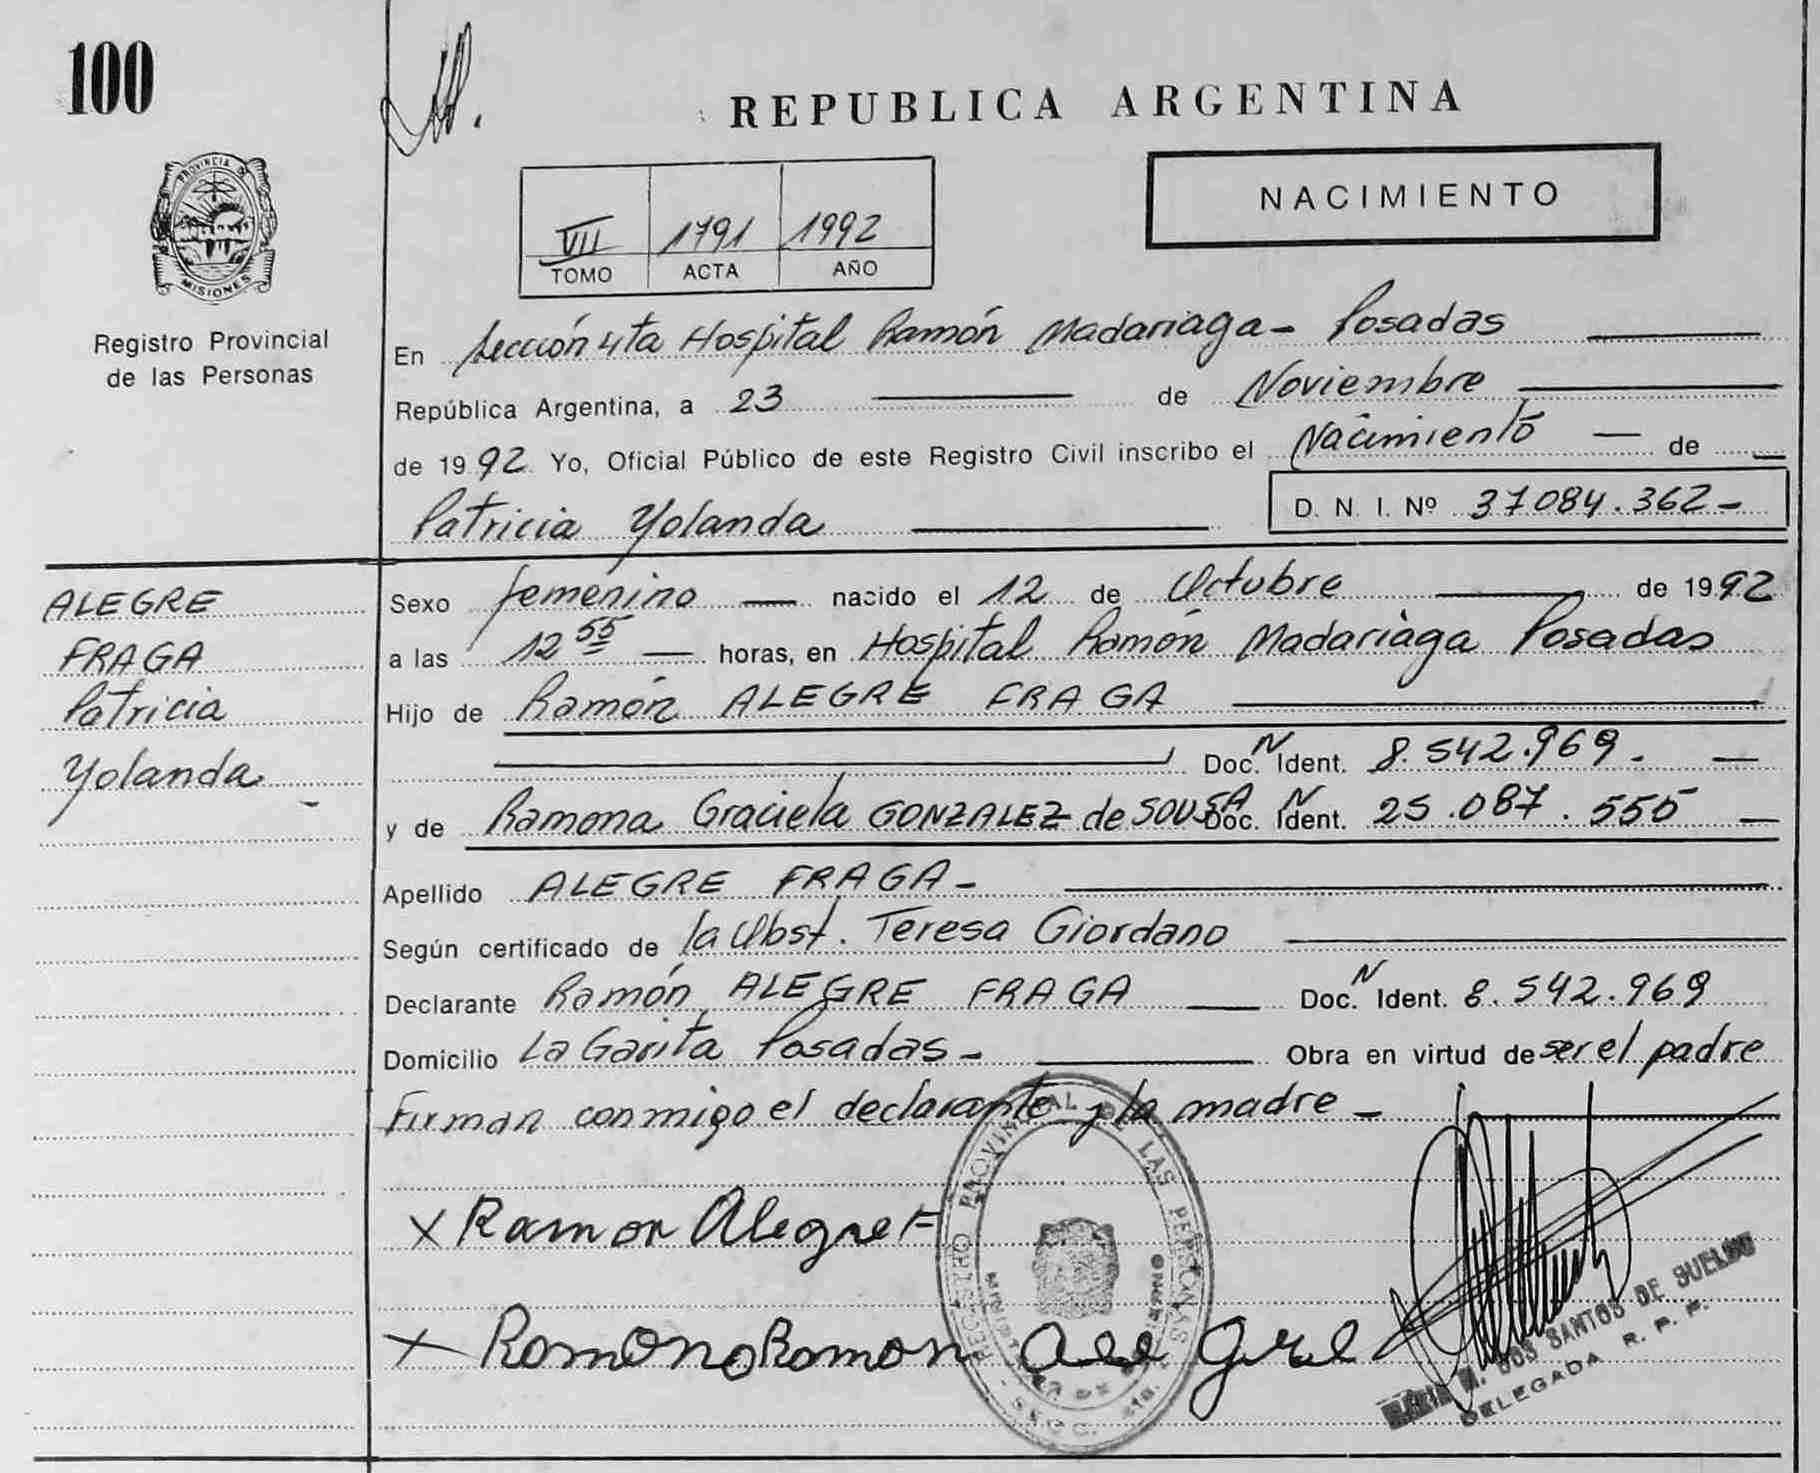 100
REPUBLICA ARGENTINA
NACIMIENTO
VII 1791 1992
TOMO ACTA AÑO
PROVINCIA DE MISIONES
Registro Provincial
de las Personas
En Sección 4ta Hospital Ramón Madariaga - Posadas
República Argentina, a 23 de Noviembre
de 1992 Yo, Oficial Público de este Registro Civil inscribo el Nacimiento de
Patricia Yolanda D. N. I. Nº 37084.362-
ALEGRE
FRAGA
Patricia
Yolanda
Sexo femenino nacido el 12 de Octubre de 1992
a las 12 55 horas, en Hospital Ramón Madariaga Posadas
Hijo de Ramón ALEGRE FRAGA
Doc. N Ident. 8.542.969.
y de Ramona Graciela GONZALEZ de SOUSA Doc. N Ident. 25.087.555
Apellido ALEGRE FRAGA-
Según certificado de la Obst. Teresa Giordano
Declarante Ramón ALEGRE FRAGA Doc. N Ident. 8.542.969
Domicilio La Garita Posadas- Obra en virtud de ser el padre
Firman conmigo el declarante y la madre-
REGISTRO PROVINCIAL DE LAS PERSONAS
x Ramon Alegre F
x
DOS SANTOS DE SUELDO
DELEGADA R. P. P.